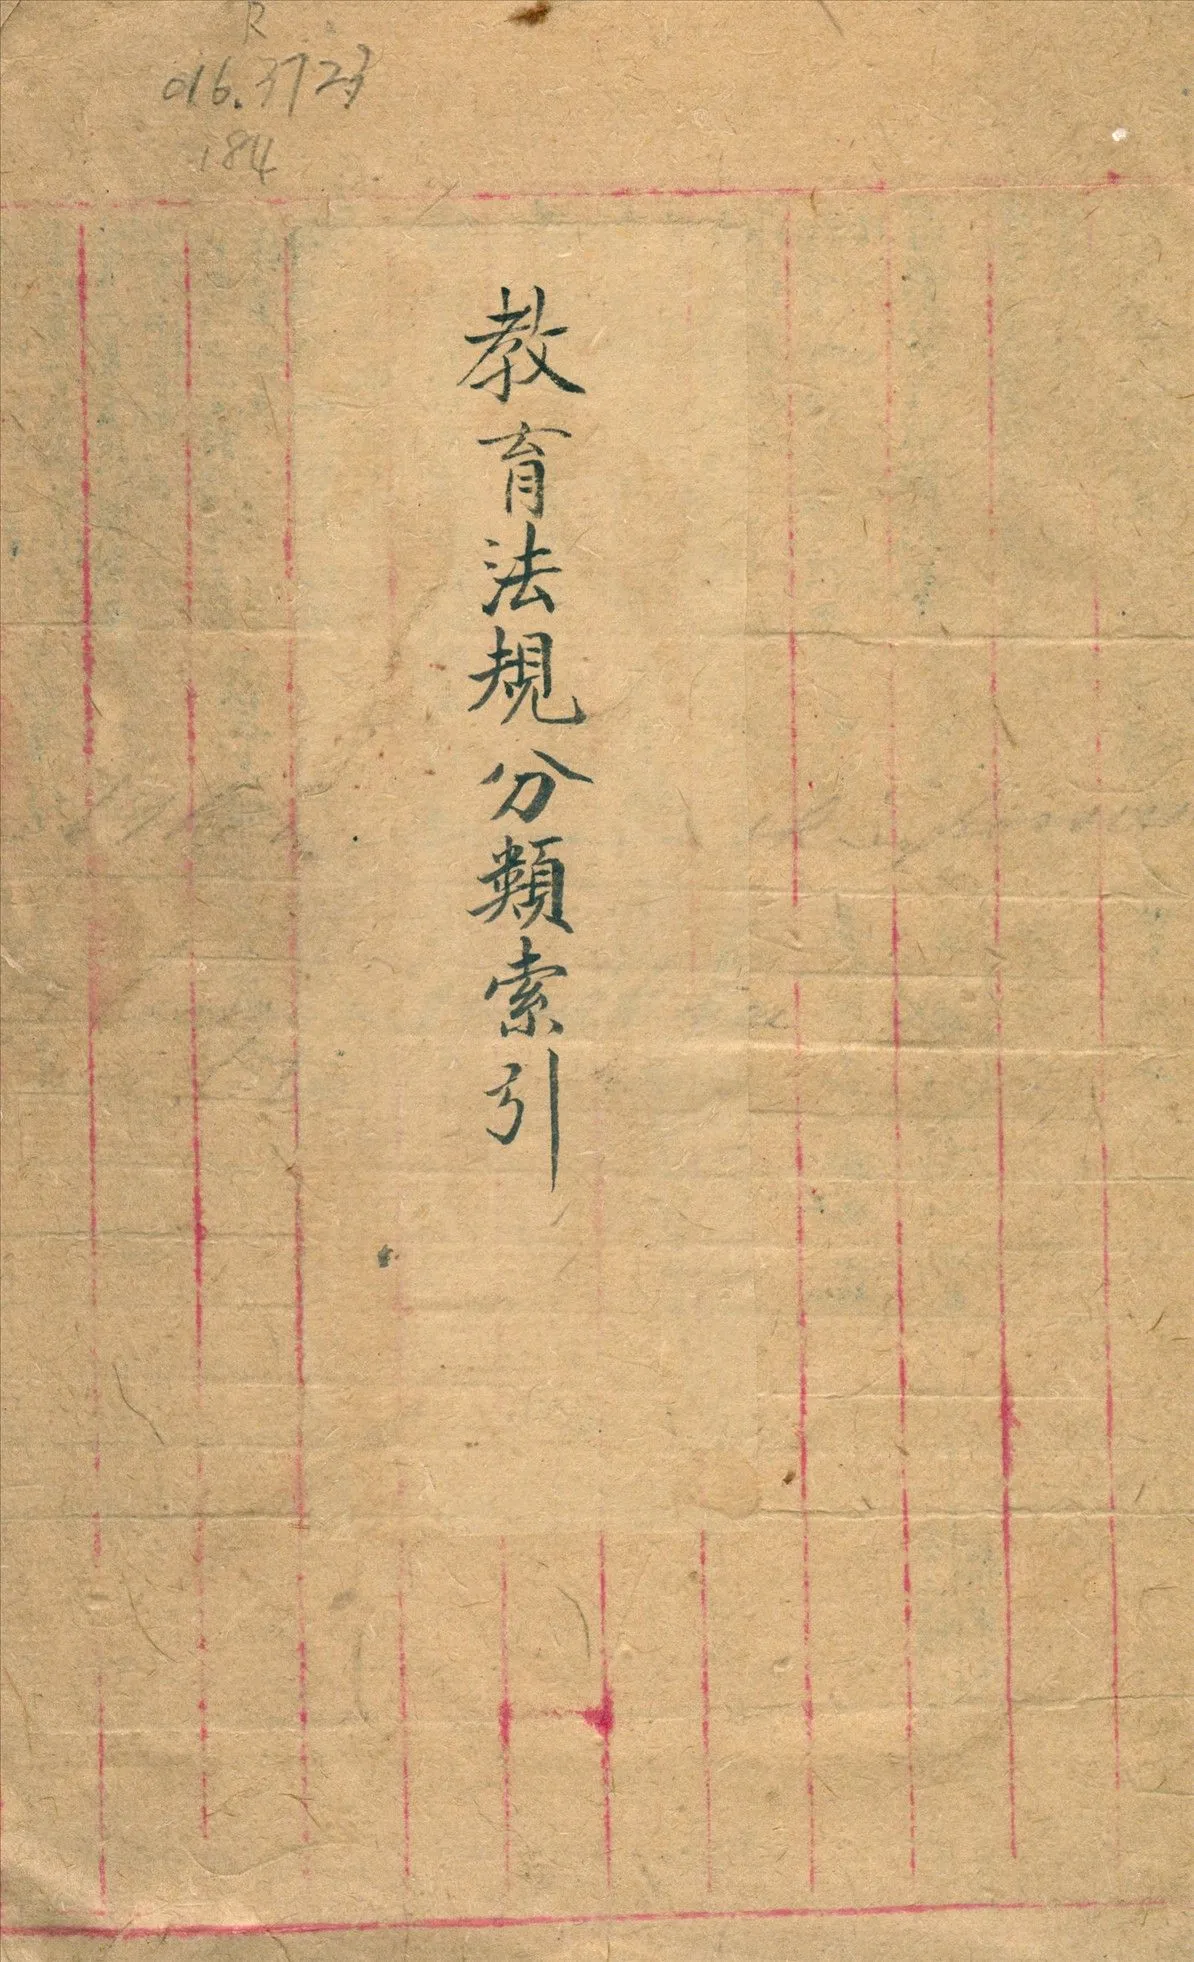 R
016.3723
184
教育法規分類索引